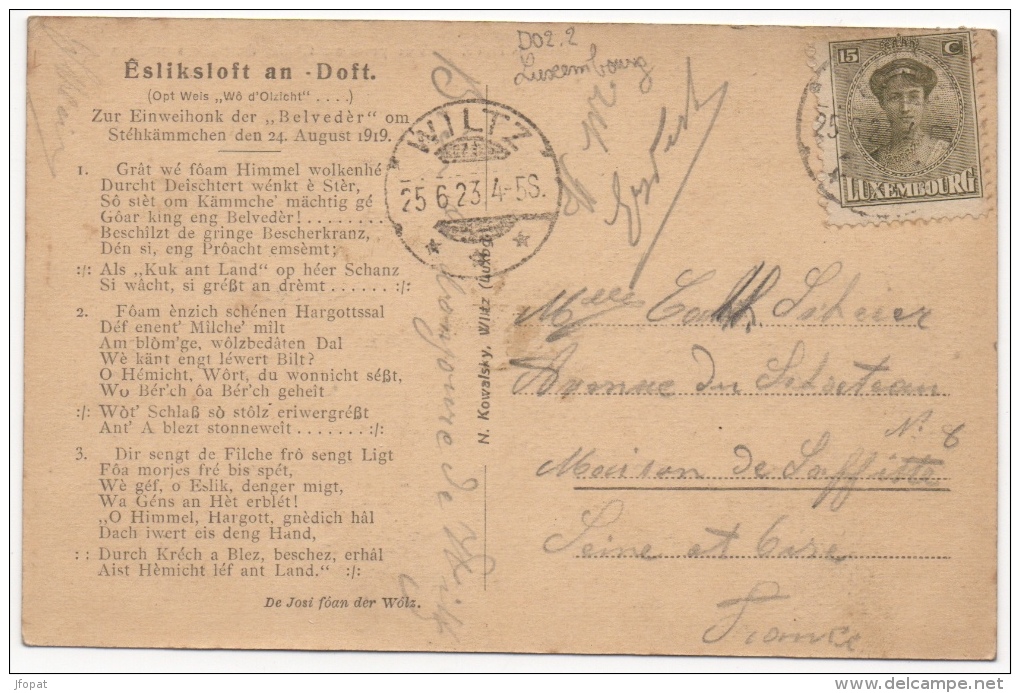 Êsliksloft an - Doft.
(Opt Weis „Wô d'Olzicht" . . . .)
Zur Einweihonk der „Belvedèr" om
Stéhkämmchen den 24. August 1919.
1. Grât wé fôam Himmel wolkenhé
Durcht Deischtert wénkt è Stèr,
Sô stèt om Kämmche' mächtig gé
Gôar king eng Belvedèr! . . . . . . . . .
Beschîlzt de gringe Bescherkranz,
Dén si, eng Prôacht emsèmt;
:/: Als „Kuk ant Land" op héer Schanz
Si wâcht, si gréßt an drèmt . . . . . . :/:
2. Fôam ènzich schénen Hargottssal
Déf enent' Mîlche' mîlt
Am blòm'ge, wôlzbedâten Dal
Wè känt engt léwert Bilt?
O Hémicht, Wôrt, du wonnicht séßt,
Wo Bér'ch ôa Bér'ch geheit
:/: Wòt' Schlaß sò stôlz eriwergréßt
Ant' A blezt stonneweît . . . . . . . :/:
3. Dir sengt de Filche frô sengt Ligt
Fôa morjes fré bis spét,
Wè géf, o Eslik, denger migt,
Wa Géns an Hèt erblét!
„O Himmel, Hargott, gnèdich hâl
Dach iwert eis deng Hand,
: : Durch Kréch a Blez, beschez, erhâl
Aist Hèmicht léf ant Land." :/:
De Josi fóan der Wólz.
N. Kowalsky, Wiltz (Luxbg.)
WILTZ
25.6.23. 4-5S.
D02.2
Luxembourg
15 C
LUXEMBOURG
25
Mlles Cath Scheuer
Avenue du
N. 6
Maison de Laffitte
Seine et Oise
France
jfopat
delcampe.net